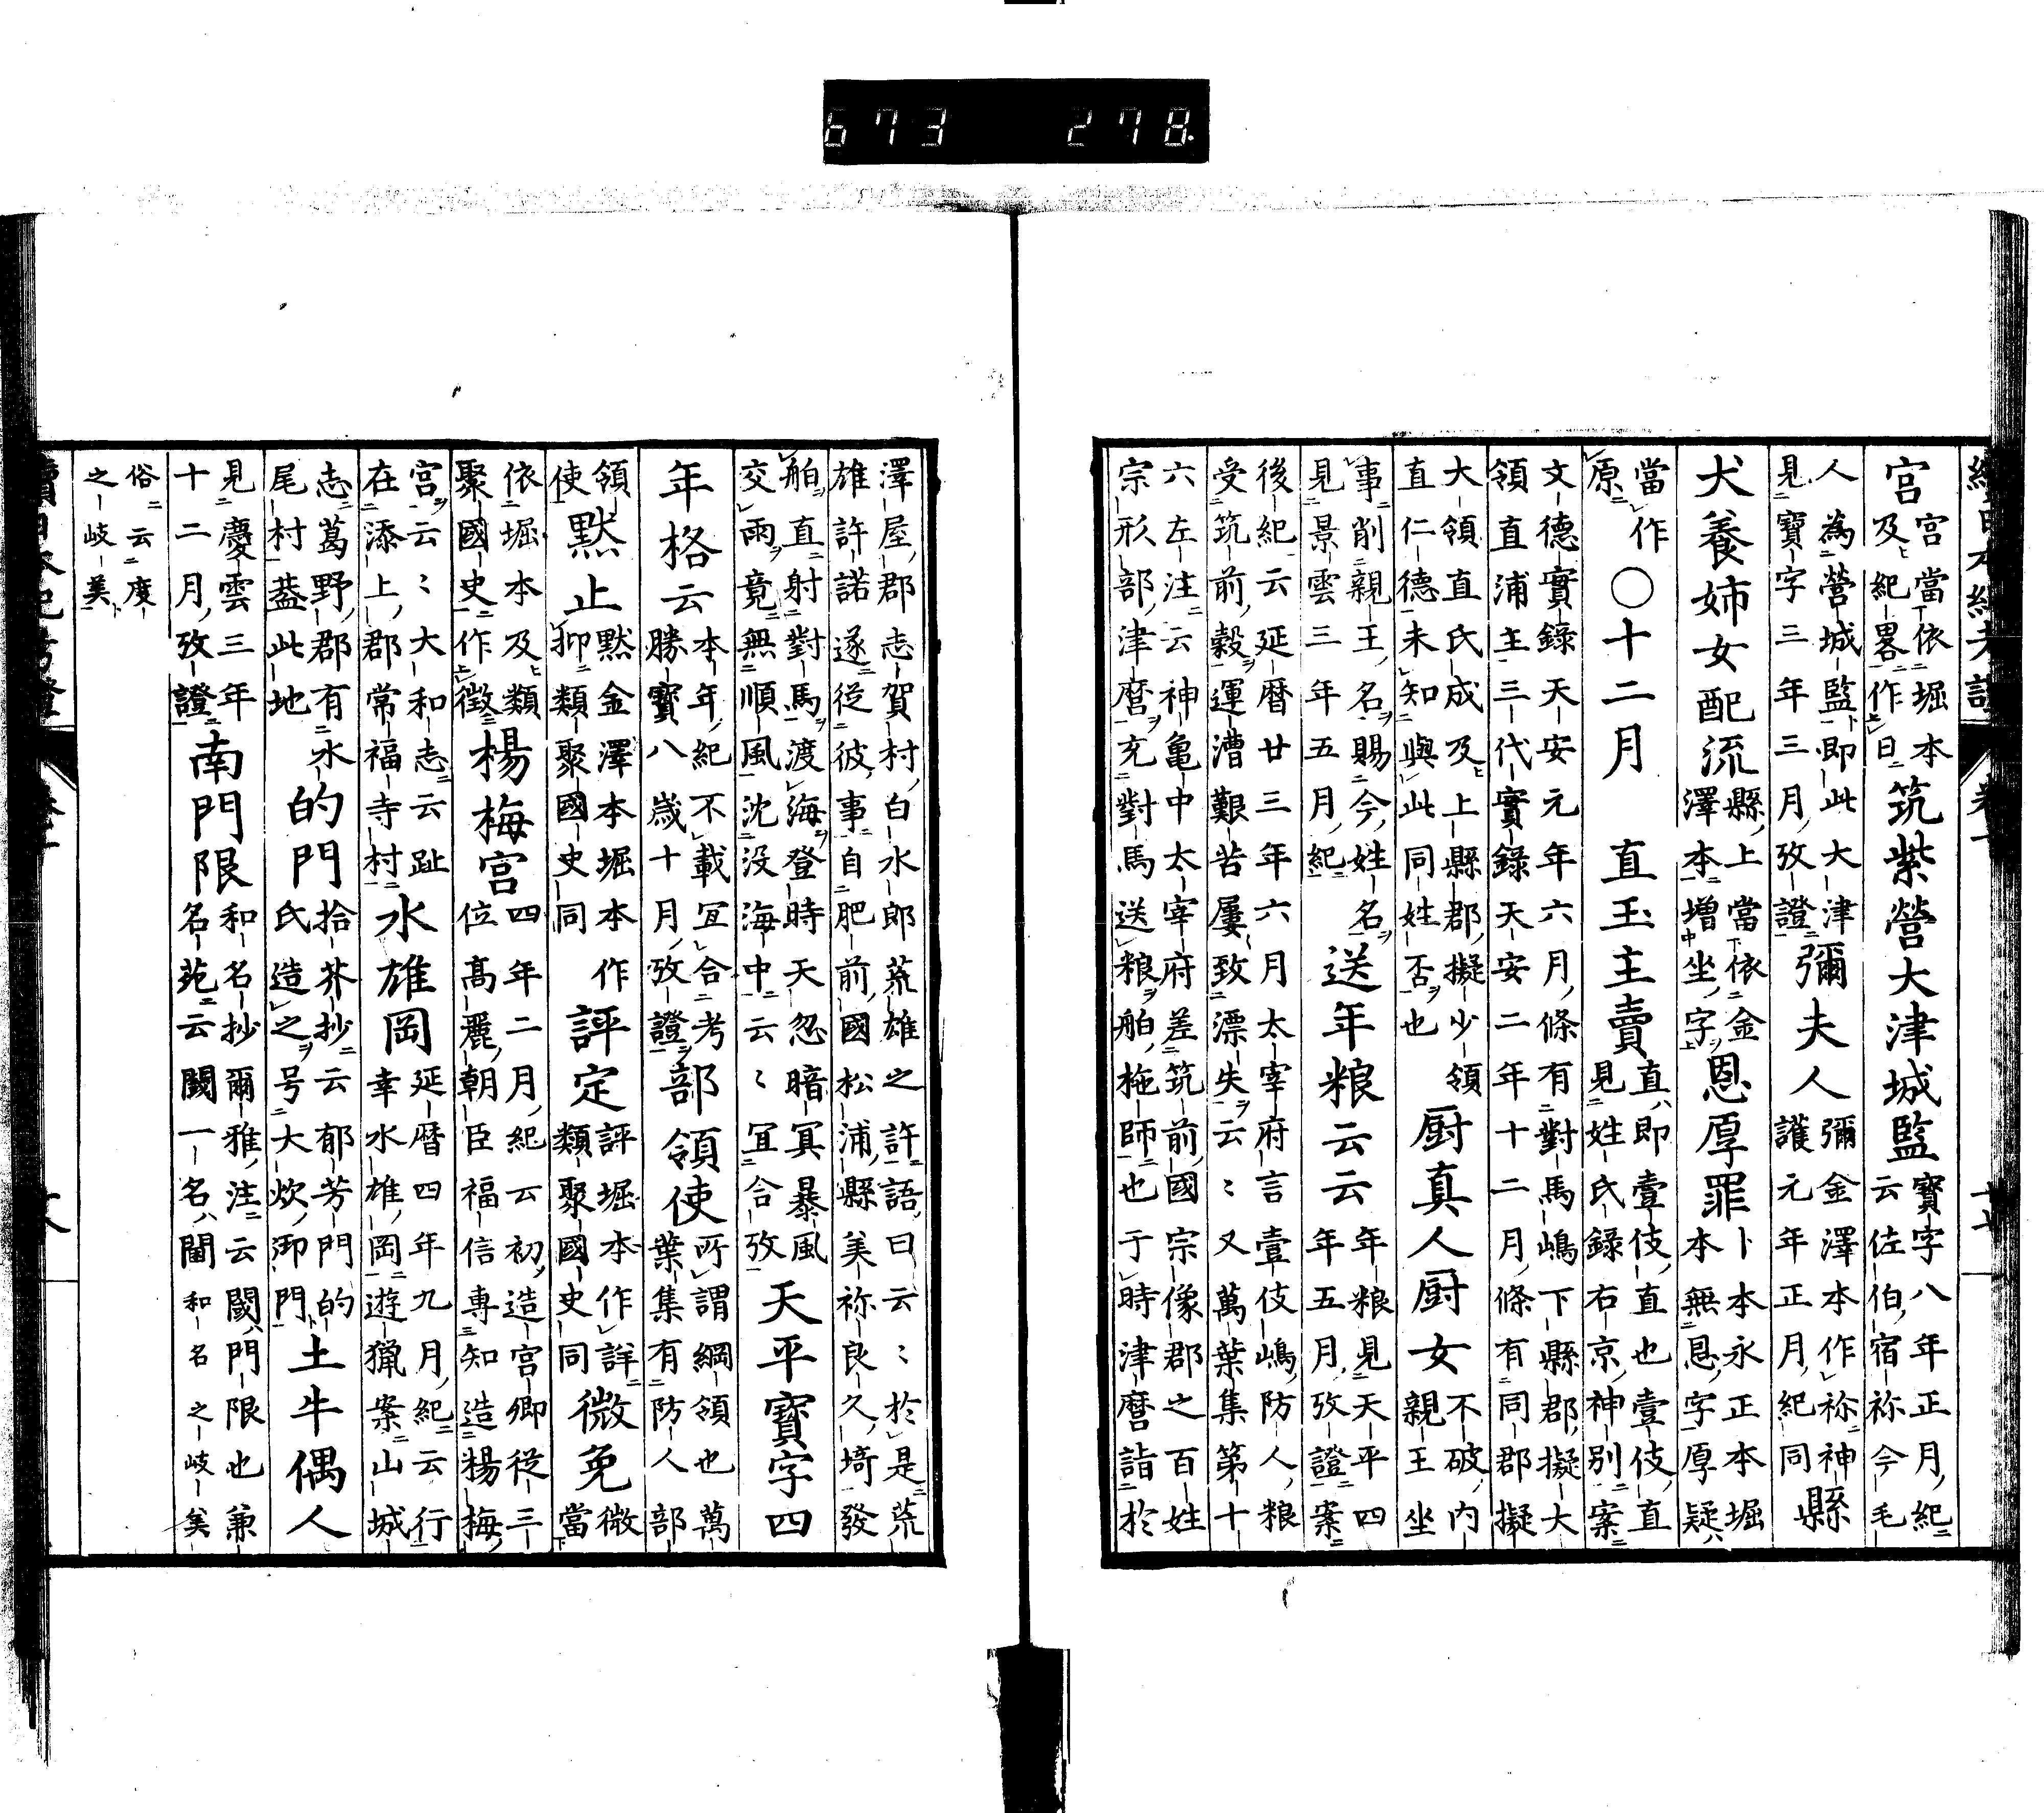 673 278
宮 宮當依堀本
及紀畧作日 筑紫營大津城監 寶字八年正月紀
云佐伯宿祢今毛
人為營城監即此大津
見寶字三年三月攷證 彌夫人 彌金澤本作祢神
護元年正月紀同 縣
犬養姉女配流 縣上當依金
澤本増坐字 恩厚罪 卜本永正本堀
本無恩字厚疑
當作
原 〇十二月 直玉主賣 直即壹伎直也壹伎直
見姓氏録右京神別案
文德實錄天安元年六月條有對馬嶋下縣郡擬大
領直浦主三代實錄天安二年十二月條有同郡擬
大領直氏成及上縣郡擬少領
直仁德未知與此同姓否也 厨真人厨女 不破内
親王坐
事削親王名賜今姓名
見景雲三年五月紀 送年粮云云 年粮見天平四
年五月攷證案
後紀云延曆廿三年六月太宰府言壹伎嶋防人粮
受筑前穀運漕艱苦屢致漂失云〻又萬葉集第十
六左注云神亀中太宰府差筑前國宗像郡之百姓
宗形部津麿充對馬送粮舶柂師也于時津麿詣於
澤屋郡志賀村白水郎荒雄之許語曰云〻於是荒
雄許諾遂從彼事自肥前國松浦縣美祢良久埼發
舶直射對馬渡海登時天忽暗冥暴風
交雨竟無順風沈没海中云〻冝合攷 天平寳字四
年格云 本年紀不載冝合考
勝寶八歲十月攷證 部領使 所謂綱領也萬
葉集有防人部
領
使 黙止 黙金澤本堀本作
抑類聚國史同 評定 評堀本作詳
類聚國史同 微免 微
當
依堀本及類
聚國史作徴 楊梅宮 四年二月紀云初造宮卿從三
位高麗朝臣福信專知造楊梅
宮云〻大和志云趾
在添上郡常福寺村 水雄岡 延曆四年九月紀云行
幸水雄岡遊獵案山城
志葛野郡有水
尾村葢此地 的門 拾芥抄云郁芳門的
氏造之号大炊御門 土牛偶人
見慶雲三年
十二月攷證 南門限 和名抄爾雅注云閾門限也兼
名苑云閾一名閫和名之岐美
俗云度
之岐美